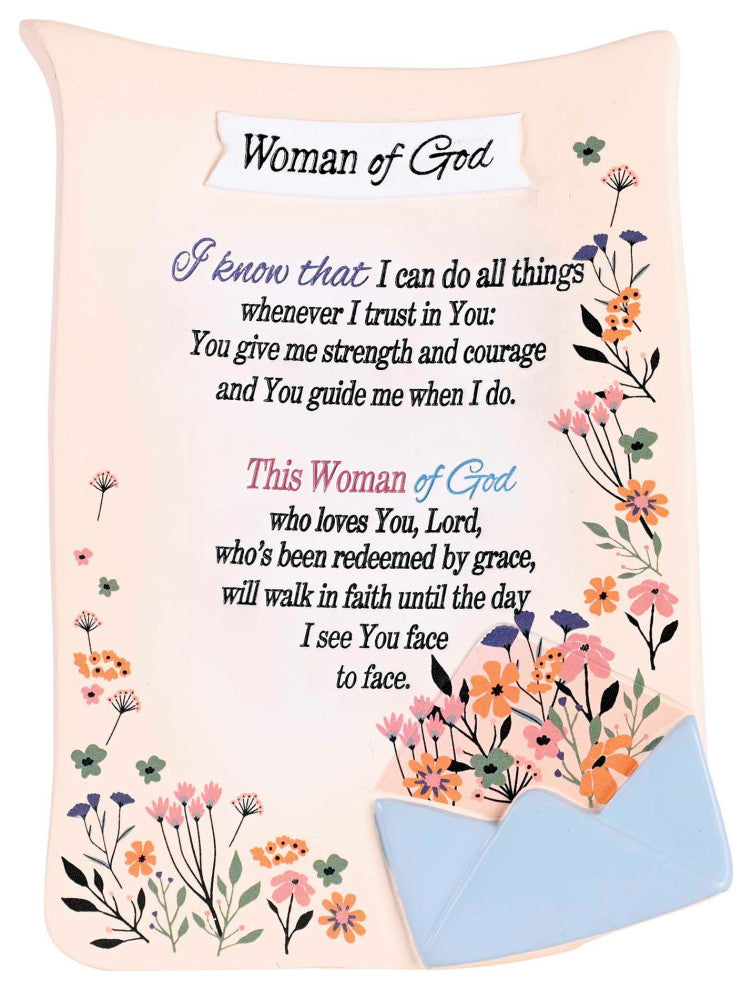 Woman of God
I know that I can do all things
whenever I trust in You:
You give me strength and courage
and You guide me when I do.
This Woman of God
who loves You, Lord,
who's been redeemed by grace,
will walk in faith until the day
I see You face
to face.